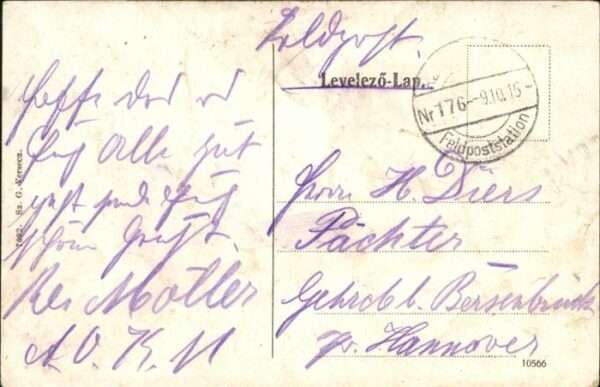 Feldpost.
Levelező-Lap.
Nr 176 - 9.10.15 -
Feldpoststation
Hoffe das es
Euch Alle gut
geht und Euch
schön Grüßt.
Möller
A. O. K. 11
Herrn H. Diers
Pächter
Gehrde b. Bersenbrück
Pr. Hannover
10566